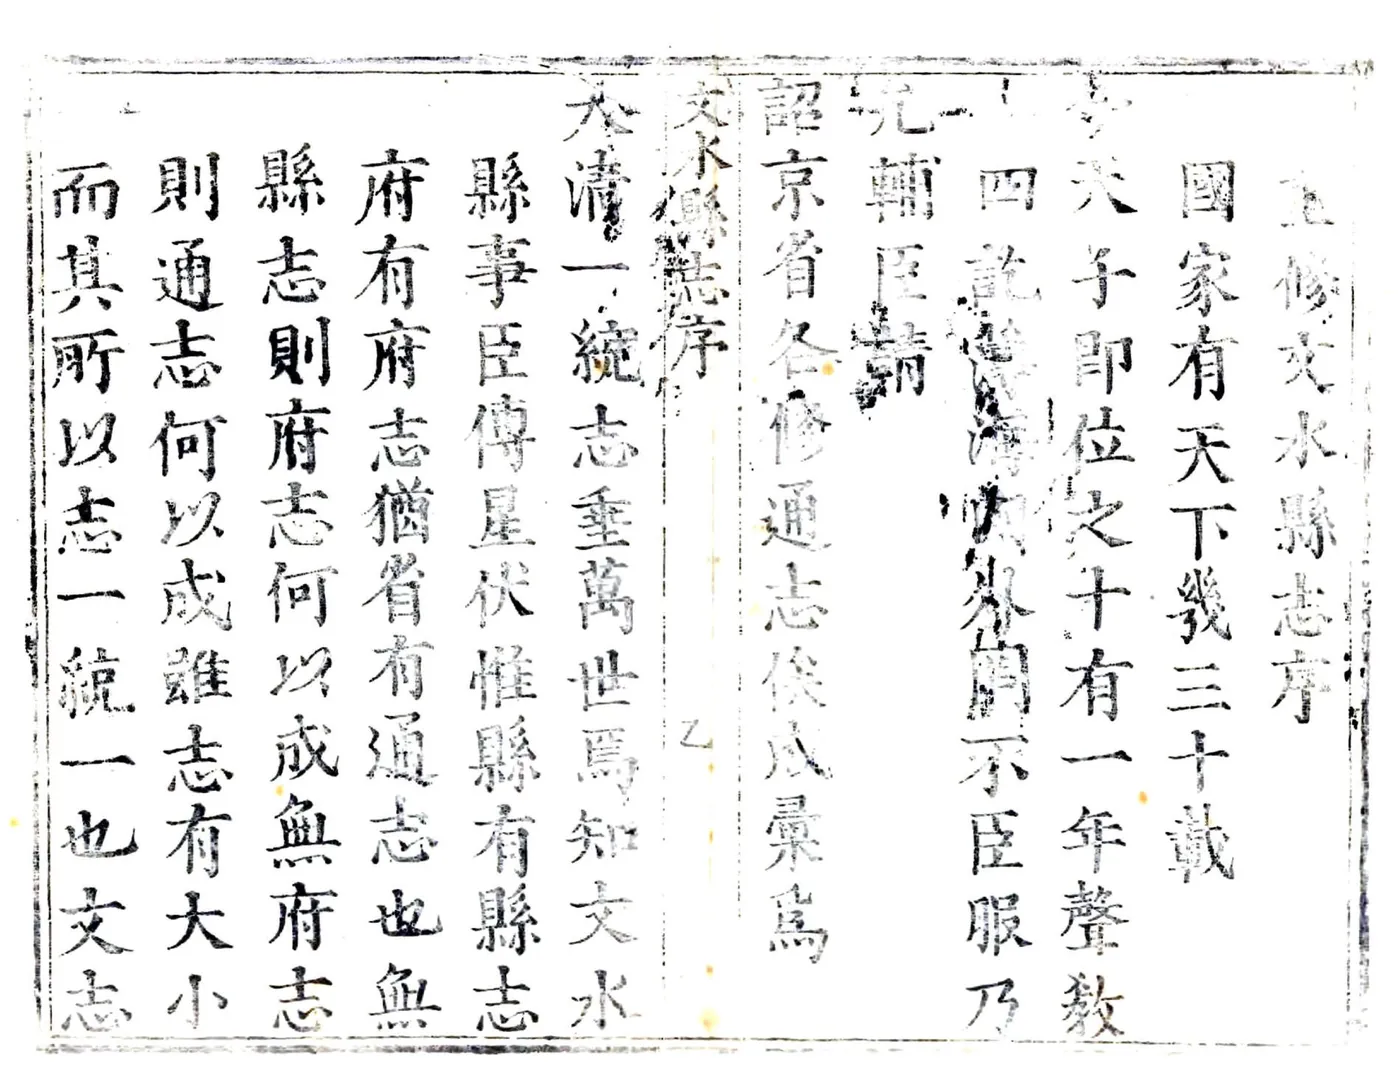 重修文水縣志序
國家有天下幾三十載
今天子即位之十有一年聲教
四訖薄海內外罔不臣服乃
允輔臣請
詔京省各修通志俟成彙為
文水縣志序
乙
大清一統志垂萬世焉知文水
縣事臣傅星伏惟縣有縣志
府有府志猶省有通志也無
縣志則府志何以成無府志
則通志何以成雖志有大小
而其所以志一統一也文志